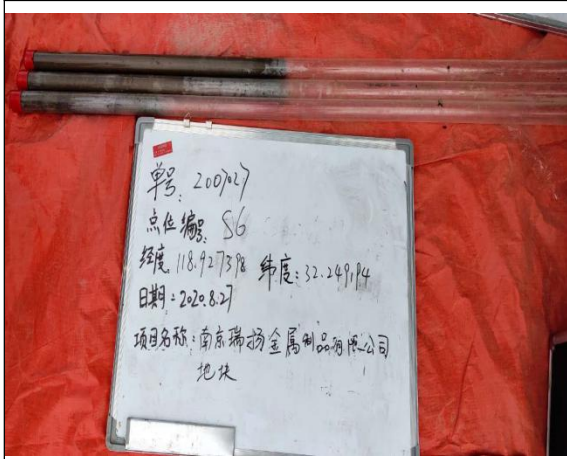 单号: 200727
点位编号: S6
经度 118.927398 纬度: 32.249194
日期: 2020.8.27
项目名称: 南京瑞扬金属制品有限公司
地块